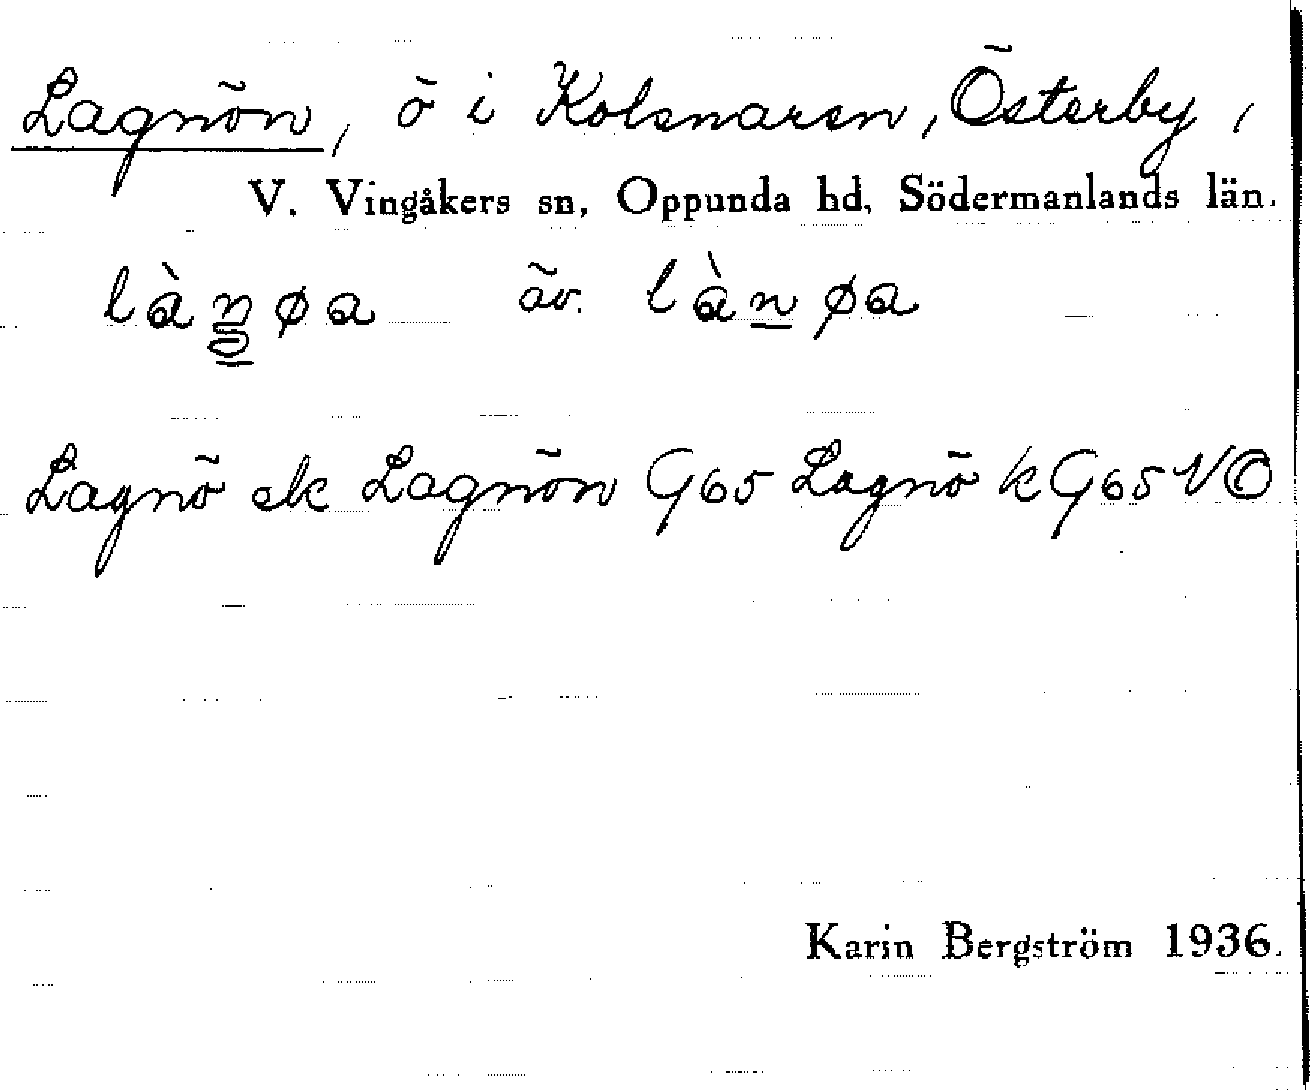 Lagnön, ö i Kolsnaren, Österby,
V. Vingåkers sn, Oppunda hd, Södermanlands län.
làŋøa äv. lànøa
Lagnö ek Lagnön G65 Lagnö k G65 VO
Karin Bergström 1936.